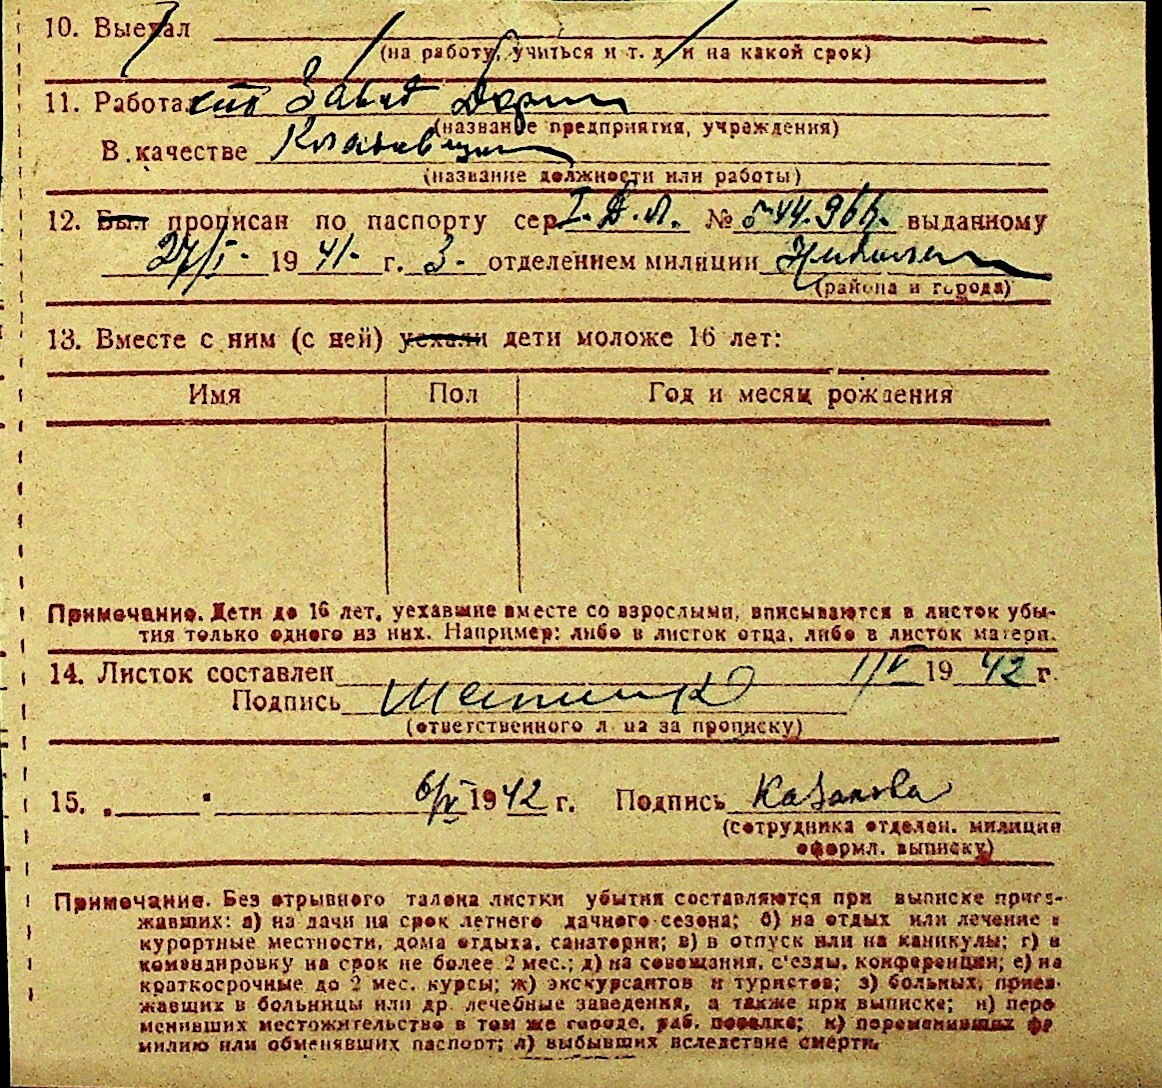 10. Выехал
(на работу, учиться и т. д. и на какой срок)
11. Работа Завод
(название предприятия, учреждения)
В качестве Кладовщик
(название должности или работы)
12. Был прописан по паспорту сер. I. Д. Л. № 544.966. выданному
27/I- 1941. г. 3- отделением милиции
(района и города)
13. Вместе с ним (с ней) уехали дети моложе 16 лет:
Имя Пол Год и месяц рождения
Примечание. Дети до 16 лет, уехавшие вместе со взрослыми, вписываются в листок убы-
тия только одного из них. Например: либо в листок отца, либо в листок матери.
14. Листок составлен 1/V 1942 г.
Подпись
(ответственного лица за прописку)
15. „ " 6/V 1942 г. Подпись Казакова
(сотрудника отделен. милиции
оформл. выписку)
Примечание. Без отрывного талона листки убытия составляются при выписке приез-
жавших: а) на дачи на срок летнего дачного сезона; б) на отдых или лечение в
курортные местности, дома отдыха, санатории; в) в отпуск или на каникулы; г) в
командировку на срок не более 2 мес.; д) на совещания, с'езды, конференции; е) на
краткосрочные до 2 мес. курсы; ж) экскурсантов и туристов; з) больных, приез-
жавших в больницы или др. лечебные заведения, а также при выписке; и) пере
менивших местожительство в том же городе, раб. поселке; к) переменивших фа
милию или обменявших паспорт; л) выбывших вследствие смерти.